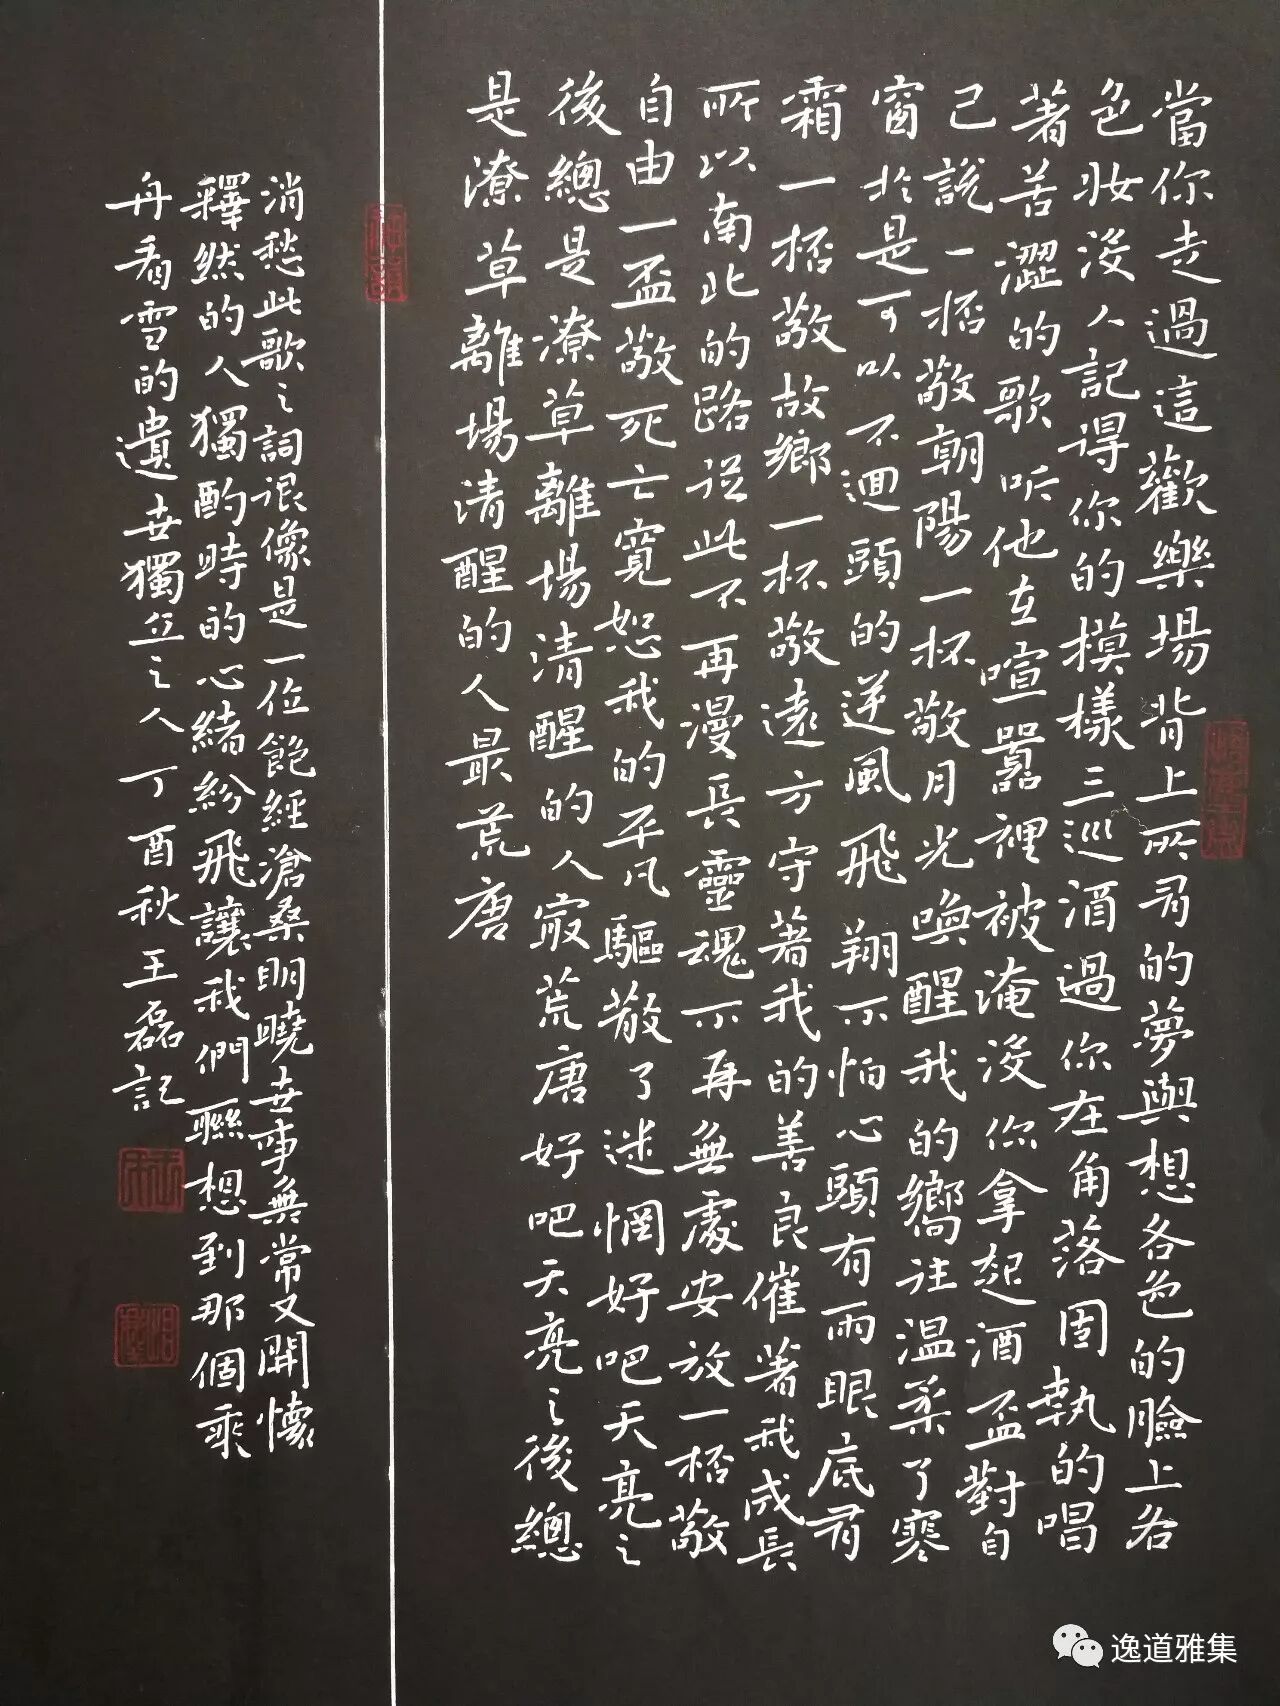 當你走過這歡樂場背上所有的夢與想各色的臉上各
色妝沒人記得你的模樣三巡酒過你在角落固執的唱
著苦澀的歌听他在喧囂裡被淹沒你拿起酒盃對自
己說一桮敬朝陽一杯敬月光喚醒我的嚮往温柔了寒
窗於是可以不迴頭的逆風飛翔不怕心頭有雨眼底有
霜一桮敬故鄉一杯敬遠方守著我的善良催著我成長
所以南北的路從此不再漫長靈魂不再無處安放一桮敬
自由一盃敬死亡寬恕我的平凡驅散了迷惘好吧天亮之
後總是潦草離場清醒的人最荒唐好吧天亮之後總
是潦草離場清醒的人最荒唐
消愁此歌之詞很像是一位飽經滄桑明曉世事無常又開懷
釋然的人獨酌時的心緒紛飛讓我們聯想到那個乘
舟看雪的遺世獨立之人丁酉秋王磊記
逸道雅集